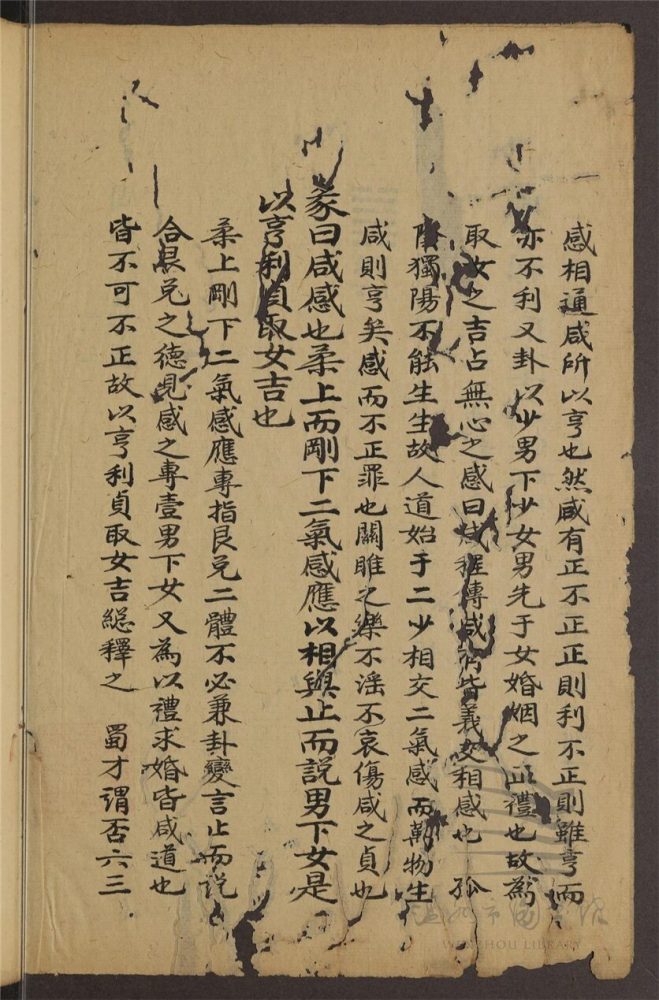 感相通咸所以亨也然咸有正不正正則利不正則雖亨而
亦不利又卦以少男下少女男先于女婚姻之正禮也故為
取女之吉占無心之感曰咸程傳咸皆義交相感也 孤
陰獨陽不能生生故人道始于二少相交二氣感而萬物生
咸則亨矣感而不正罪也關雎之樂不淫不哀傷咸之貞也
彖曰咸感也柔上而剛下二氣感應以相與止而說男下女是
以亨利貞取女吉也
柔上剛下二氣感應專指艮兌二體不必兼卦變言止而說
合艮兌之德見感之專壹男下女又為以禮求婚皆咸道也
皆不可不正故以亨利貞取女吉緫釋之 蜀才謂否六三
溫州市圖書館
WENZHOU LIBRARY